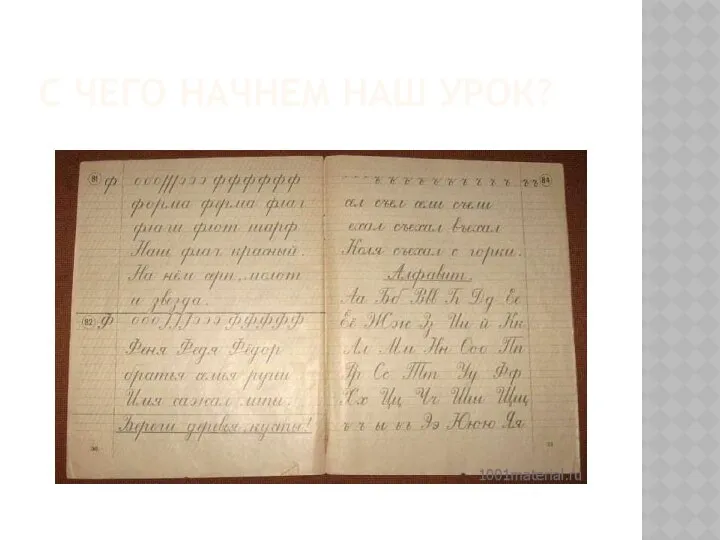 С ЧЕГО НАЧНЕМ НАШ УРОК?
81 ф ооо///эээ фффффф
форма ферма флаг
флаги флот шарф
Наш флаг красный.
На нём серп, молот
и звезда.
82 Ф ооо///эээ ффффф
Феня Федя Фёдор
братья семья ручьи
Илья сажал липы.
Береги деревья, кусты!
ъ ъ ъ ъ ъ ъ ъ ъ ъ ъ ъъ 84
сел съел сели съели
ехал съехал въехал
Коля съехал с горки.
Алфавит.
Аа Бб Вв Гг Дд Ее
Её Жж Зз Ии й Кк
Лл Мм Нн Ооо Пп
Рр Сс Тт Уу Фф
Хх Цц Чч Шш Щщ
ъ ъ ы ь Ээ Ююю Яя
1001material.ru